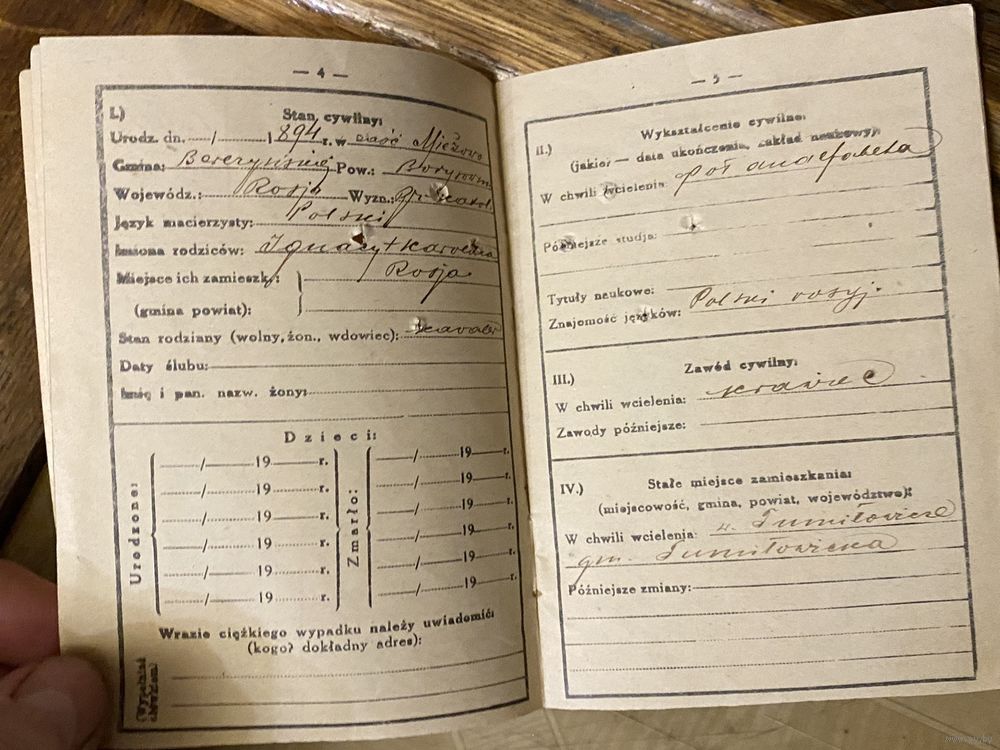 — 4 —
I.) Stan cywilny:
Urodz. dn. —/— 1894 r. w Mieżowo
Gmina: Berezyńskiej Pow.:
Wojewódz.: Rosja Wyzn.:
Język macierzysty: Polski
Imiona rodziców: Ignacy + Karolina
Miejsce ich zamieszk.: Rosja
(gmina powiat):
Stan rodziany (wolny, żon., wdowiec): kawaler
Daty ślubu:
Imię i pan. nazw. żony:
Dzieci:
Urodzone:
—/— 19 — r.
—/— 19 — r.
—/— 19 — r.
—/— 19 — r.
—/— 19 — r.
—/— 19 — r.
Zmarło:
—/— 19 — r.
—/— 19 — r.
—/— 19 — r.
—/— 19 — r.
—/— 19 — r.
—/— 19 — r.
Wrazie ciężkiego wypadku należy uwiadomić:
(kogo? dokładny adres):
(Wypełniać ołówkiem)
— 5 —
II.) Wykształcenie cywilne:
(jakie: — data ukończenia, zakład naukowy):
W chwili wcielenia: poł analfabeta
Późniejsze studja:
Tytuły naukowe:
Znajomość języków: Polski rosyj.
III.) Zawód cywilny:
W chwili wcielenia: krawiec
Zawody późniejsze:
IV.) Stałe miejsce zamieszkania:
(miejscowość, gmina, powiat, województwo):
W chwili wcielenia: w. Tumiłowicze
gm. Tumiłowicka
Późniejsze zmiany: